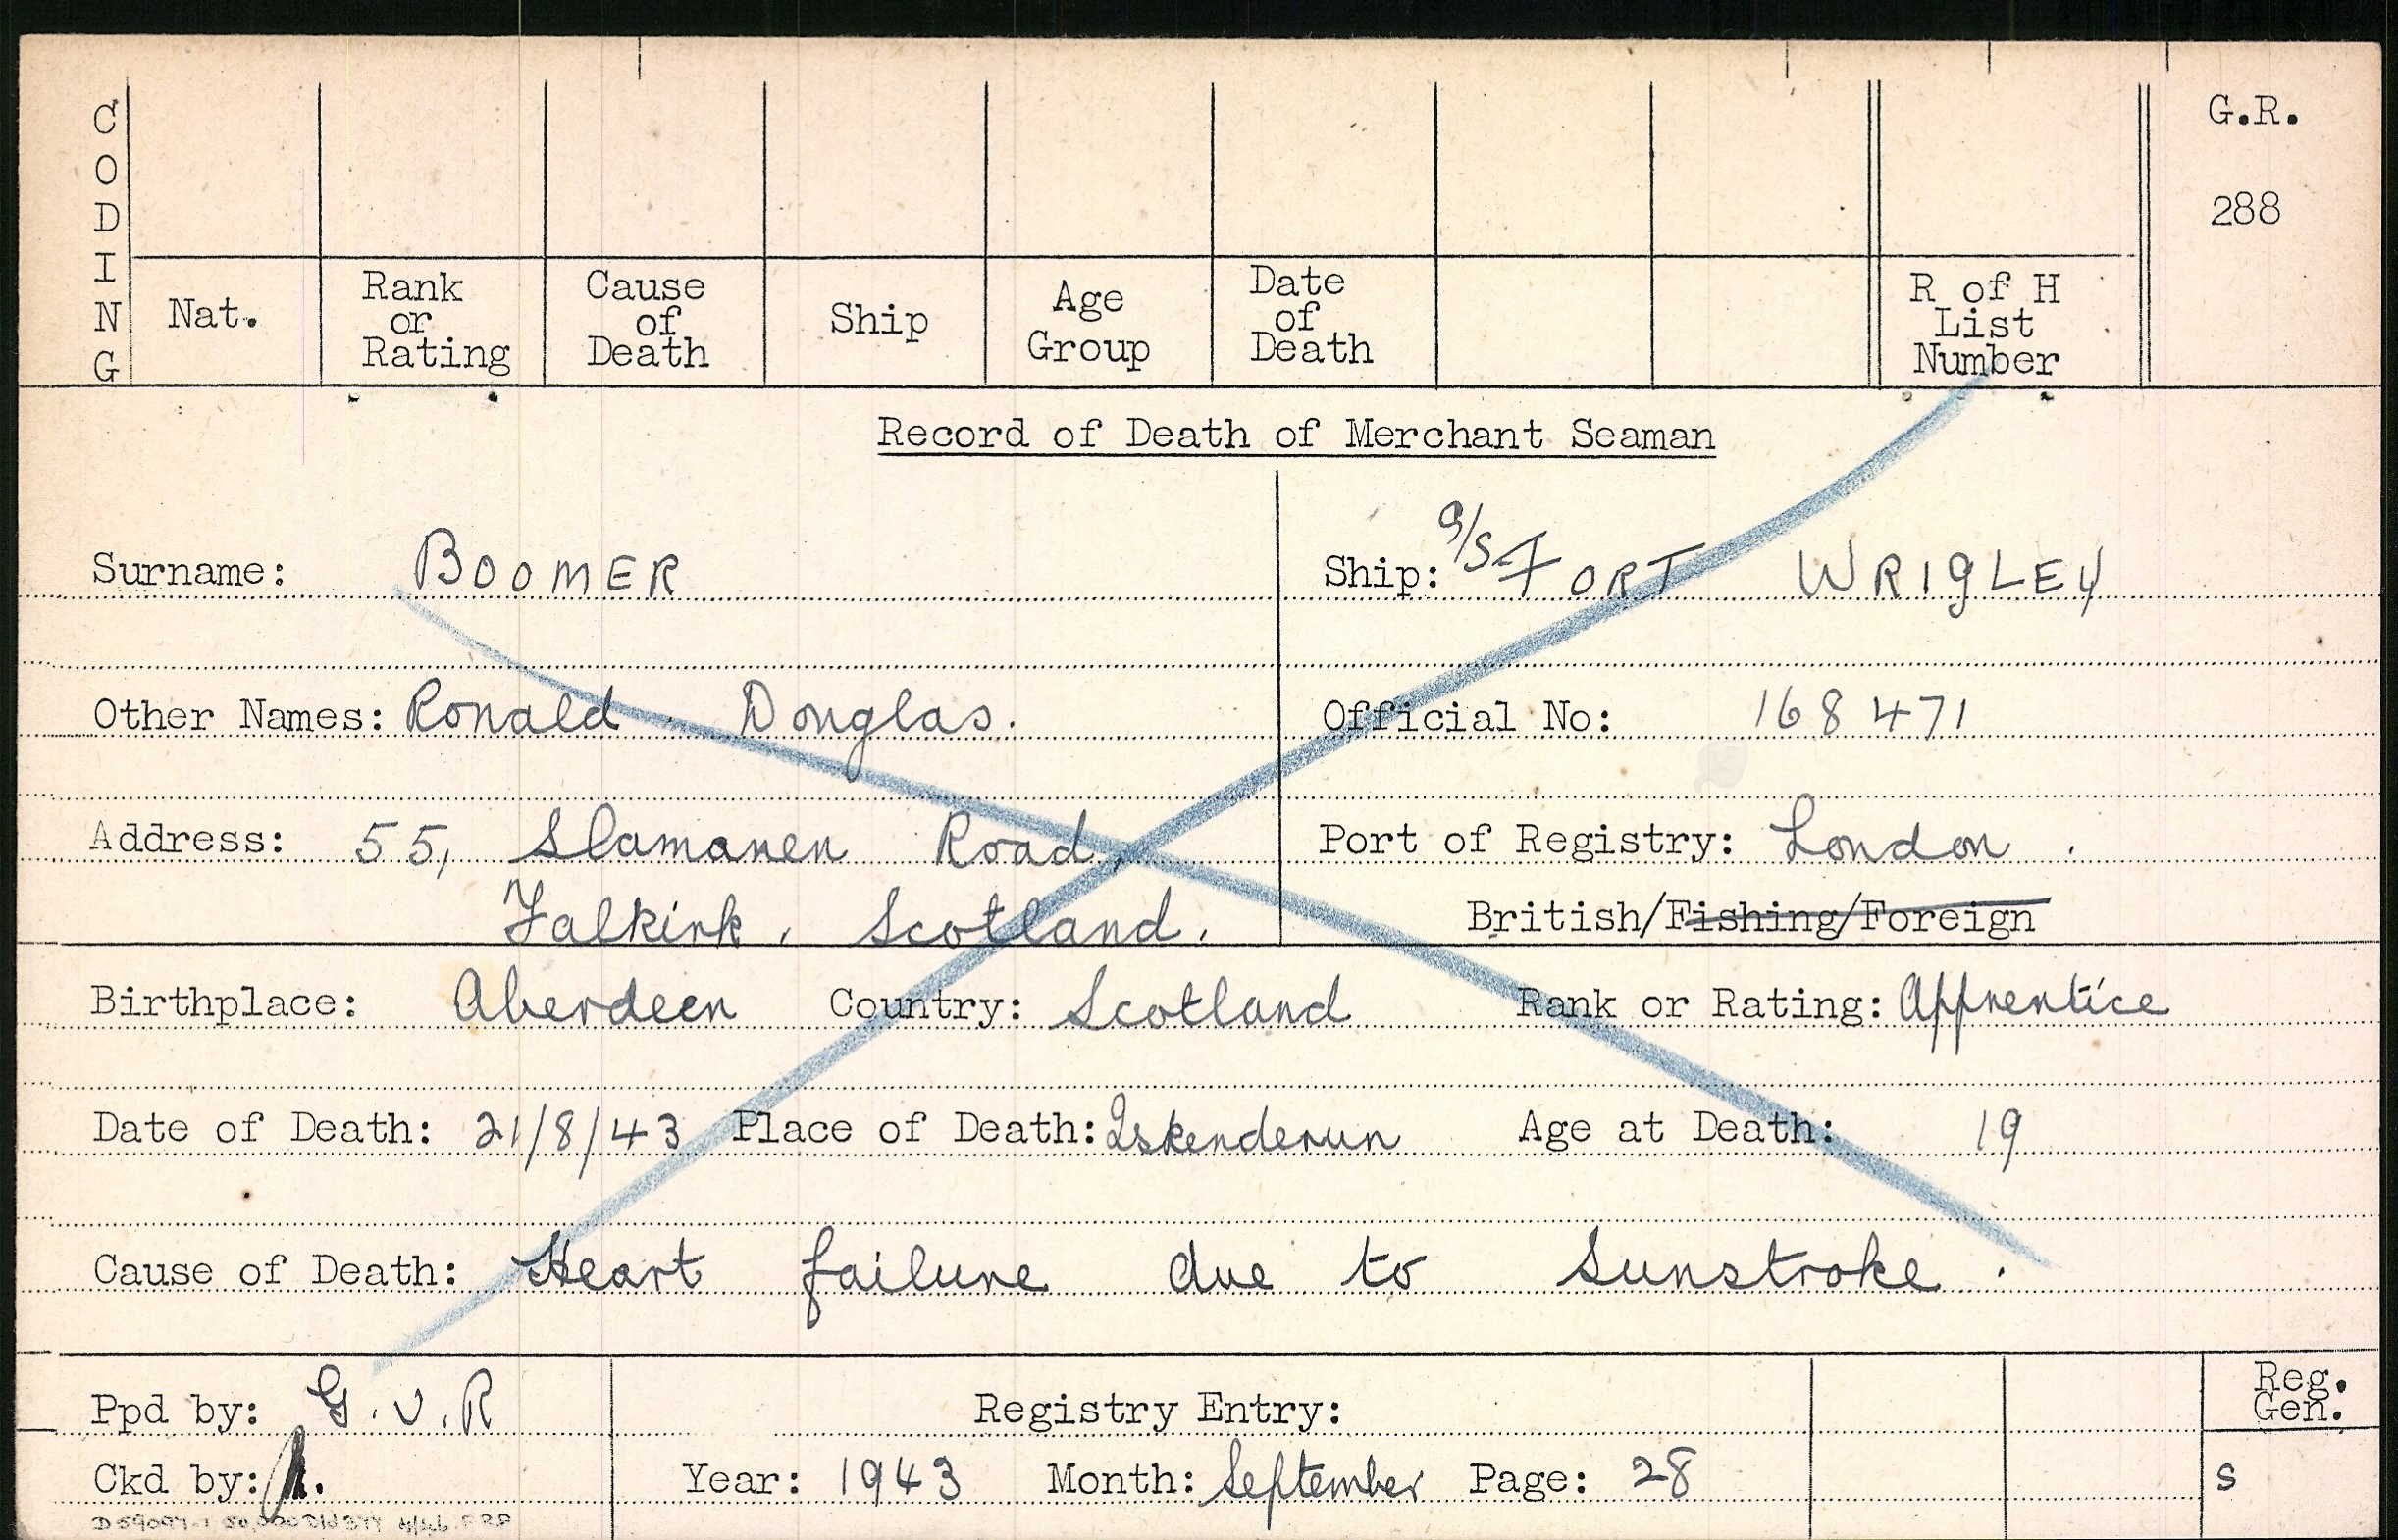 CODING
G.R.
288
Nat.
Rank or Rating
Cause of Death
Ship
Age Group
Date of Death
R of H List Number
Record of Death of Merchant Seaman
Surname: BOOMER
Ship: S/S FORT WRIGLEY
Other Names: Ronald Douglas.
Official No: 168471
Address: 55, Slamanen Road,
Falkirk, Scotland.
Port of Registry: London.
British/Fishing/Foreign
Birthplace: Aberdeen Country: Scotland Rank or Rating: Apprentice
Date of Death: 21/8/43 Place of Death: Iskenderun Age at Death: 19
Cause of Death: Heart failure due to Sunstroke.
Ppd by: G.V.R
Registry Entry:
Reg. Gen.
Ckd by:
Year: 1943 Month: September Page: 28
S